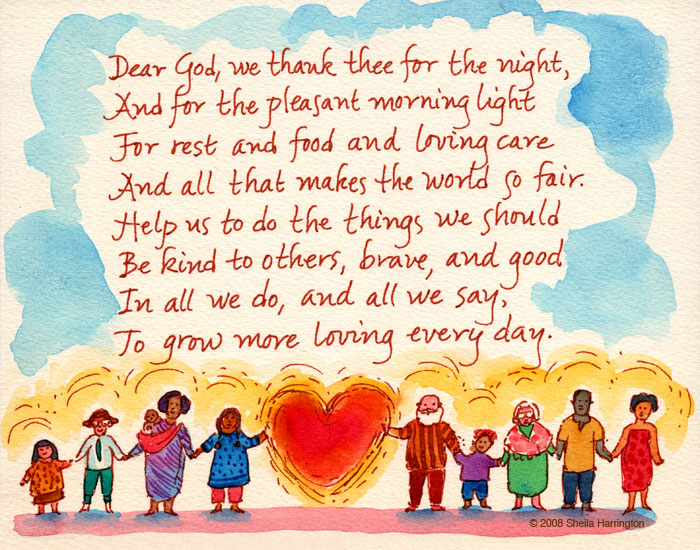 Dear God, we thank thee for the night,
And for the pleasant morning light
For rest and food and loving care
And all that makes the world so fair.
Help us to do the things we should
Be kind to others, brave, and good
In all we do, and all we say,
To grow more loving every day.
© 2008 Sheila Harrington